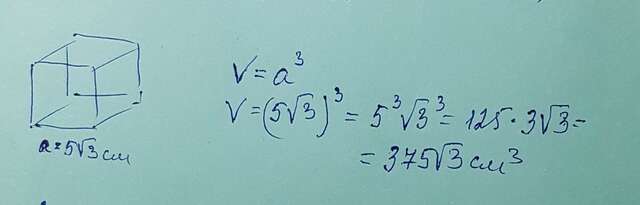 a = 5√3 см
V = a³
V = (5√3)³ = 5³√3³ = 125 · 3√3 =
= 375√3 см³